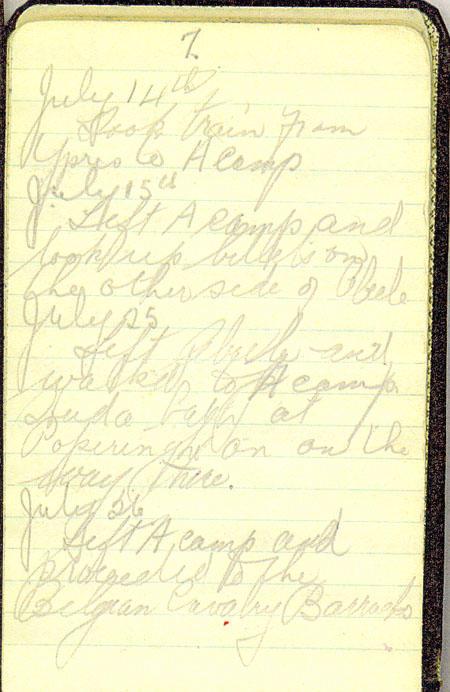 7.
July 14th
Took train from
Ypres to A camp
July 15th
Left A camp and
took up billets on
the other side of Abeele
July 25
Left Abeele and
walked to A camp
had a bath at
Poperinghe on on the
way there.
July 26
Left A camp and
proceeded to the
Belgian Cavalry Barracks